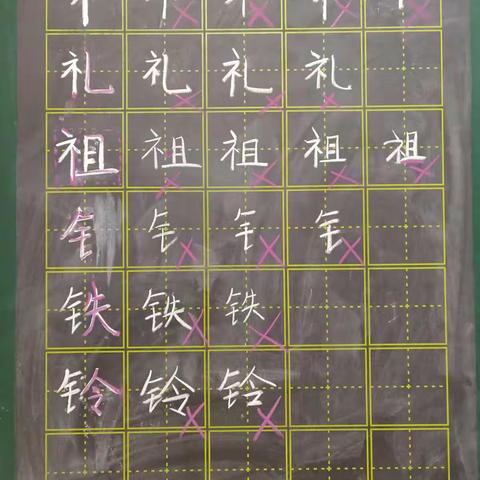 礼 礼 礼 礼
祖 祖 祖 祖 祖
钅 钅 钅 钅
铁 铁 铁
铃 铃 铪